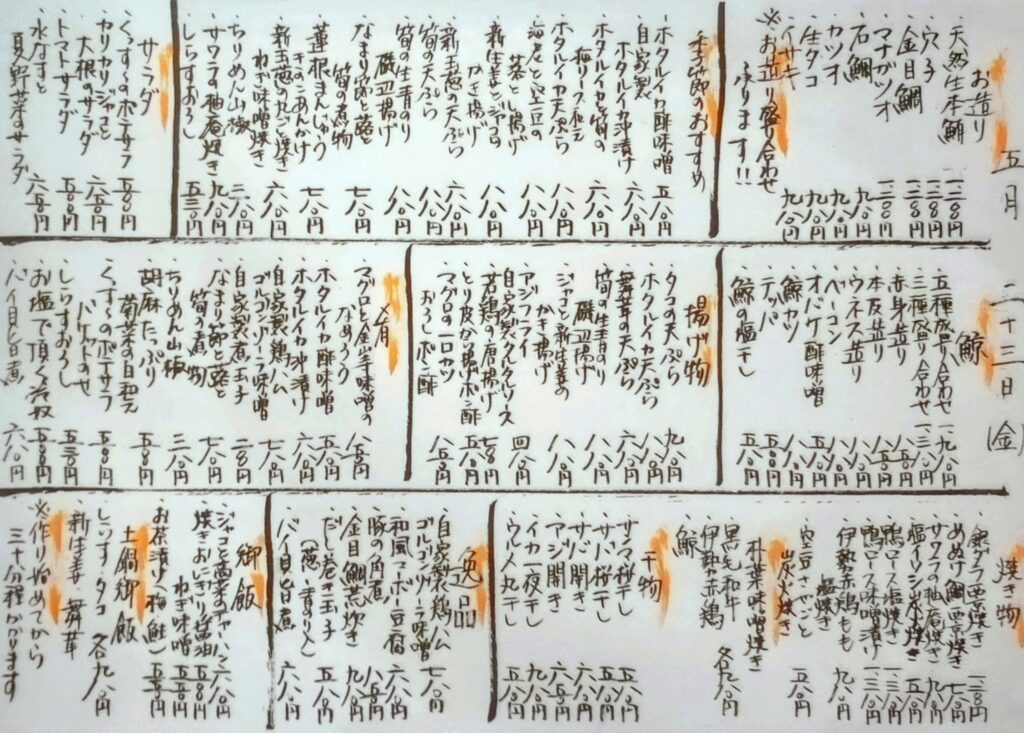 五月二十三日(金)
お造り
・天然生本鮪 一二八〇円
・穴子 一二八〇円
・金目鯛 一二八〇円
・マナガツオ 一二八〇円
・石鯛 九八〇円
・カツオ 九八〇円
・生タコ 九八〇円
・イサキ 九八〇円
※お造り盛り合わせ
承ります!!
季節のおすすめ
・ホタルイカ酢味噌 五八〇円
・自家製
ホタルイカ沖漬け 六八〇円
・ホタルイカと筍の
梅バターソース和え
・ホタルイカ天ぷら
・海老と空豆の
・新生姜とジャコの
かき揚げ 八八〇円
・新玉葱の天ぷら 六八〇円
・筍の天ぷら 八八〇円
・筍の生青のり
磯辺揚げ 八八〇円
・なまり節と蕗と
筍の煮物 七八〇円
・蓮根まんじゅう
きのこあんかけ 七八〇円
・新玉葱の丸ごと焼き
ねぎ味噌焼き
・ちりめん山椒 三八〇円
・サワラの柚庵焼き 九八〇円
・しらすおろし 五三〇円
サラダ
・くずし豆腐のポテサラ 五八〇円
・カリカリジャコと
大根のサラダ 六八〇円
・トマトサラダ 五八〇円
・水なすと
夏野菜のサラダ 六八〇円
鯨
・五種盛り合わせ
・三種盛り合わせ
・赤身造り
・本皮造り
・ウネス造り
・ベーコン
・オバケ酢味噌
・鯨カツ
・テッパ
・鯨の塩干し
揚げ物
・タコの天ぷら 九八〇円
・ホタルイカ天ぷら
・舞茸の天ぷら 六八〇円
・筍の生青のり
磯辺揚げ 八八〇円
・ジャコと新生姜の
かき揚げ 八八〇円
・アジフライ 四八〇円
・自家製タルタルソース
・若鶏の唐揚げ 七八〇円
・とり皮から揚げポン酢 五八〇円
・マグロの一口カツ
おろしポン酢 八八〇円
一品肴
・マグロと金山寺味噌の
なめろう 八八〇円
・ホタルイカ酢味噌 五八〇円
・ホタルイカ沖漬け 六八〇円
・自家製鶏ハム
ゴルゴンゾーラ味噌 七八〇円
・自家製煮玉子 二八〇円
・なまり節と蕗と
筍の煮物 七八〇円
・ちりめん山椒 三八〇円
・胡麻たっぷり
菊菜のお白和え 五八〇円
・くずし豆腐のポテサラ 五八〇円
バケットのせ
・しらすおろし 五三〇円
・お塩で頂く冷奴 五八〇円
・バイ貝旨煮 六八〇円
焼き物
・銀ダラ西京焼き 一二八〇円
・めぬけ鯛西京焼き 七八〇円
・サワラの柚庵焼き 九八〇円
・塩イワシ炭火焼き 五八〇円
・鴨ロース塩焼き 一二八〇円
・鴨ロース味噌漬け 一二八〇円
・伊勢赤鶏もも
塩焼き 九八〇円
・空豆さやごと
炭火焼き 五八〇円
朴葉味噌焼き
・黒毛和牛
・伊勢赤鶏
・鯨 各九八〇円
干物
・サンマ桜干し 五八〇円
・サバ桜干し 五八〇円
・サバ開き 六八〇円
・アジ開き 六八〇円
・イカ一夜干し 八八〇円
・ウルメ丸干し 五八〇円
逸品
・自家製鶏ハム
ゴルゴンゾーラ味噌 七八〇円
・和風マーボー豆腐 六八〇円
・豚の角煮 八八〇円
・金目鯛荒炊き 九八〇円
・だし巻き玉子 五八〇円
(葱・青のり入)
・バイ貝旨煮 六八〇円
御飯
・ジャコと高菜のチャーハン 六八〇円
・焼きおにぎり醤油 五八〇円
ねぎ味噌 五八〇円
・お茶漬け(梅・鮭) 五八〇円
土鍋御飯
・しらす・タコ 各九八〇円
・新生姜・舞茸
※作り始めてから
三十分程かかります